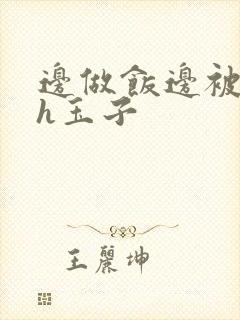 邊做飯邊被
h玉子
王麗坤